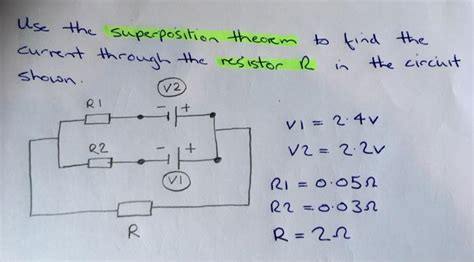 Use the superposition theorem to find the
current through the resistor R in the circuit
shown.
V2
R1 - +
R2 - +
V1
R
V1 = 2.4V
V2 = 2.2V
R1 = 0.05Ω
R2 = 0.03Ω
R = 2Ω